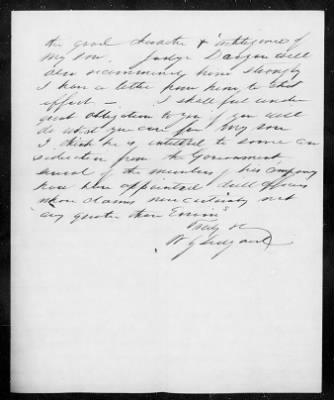 the good character & intelligence of
my son. Judge Dargan will
also recommend him strongly
I have a letter from him to that
effect — I shall feel under
great obligation to you if you will
do what you can for my son
I think he is entitled to some con
sideration from the Government
several of the members of his company
have been appointed drill officers
whose claims were certainly not
any greater than
Truly &c